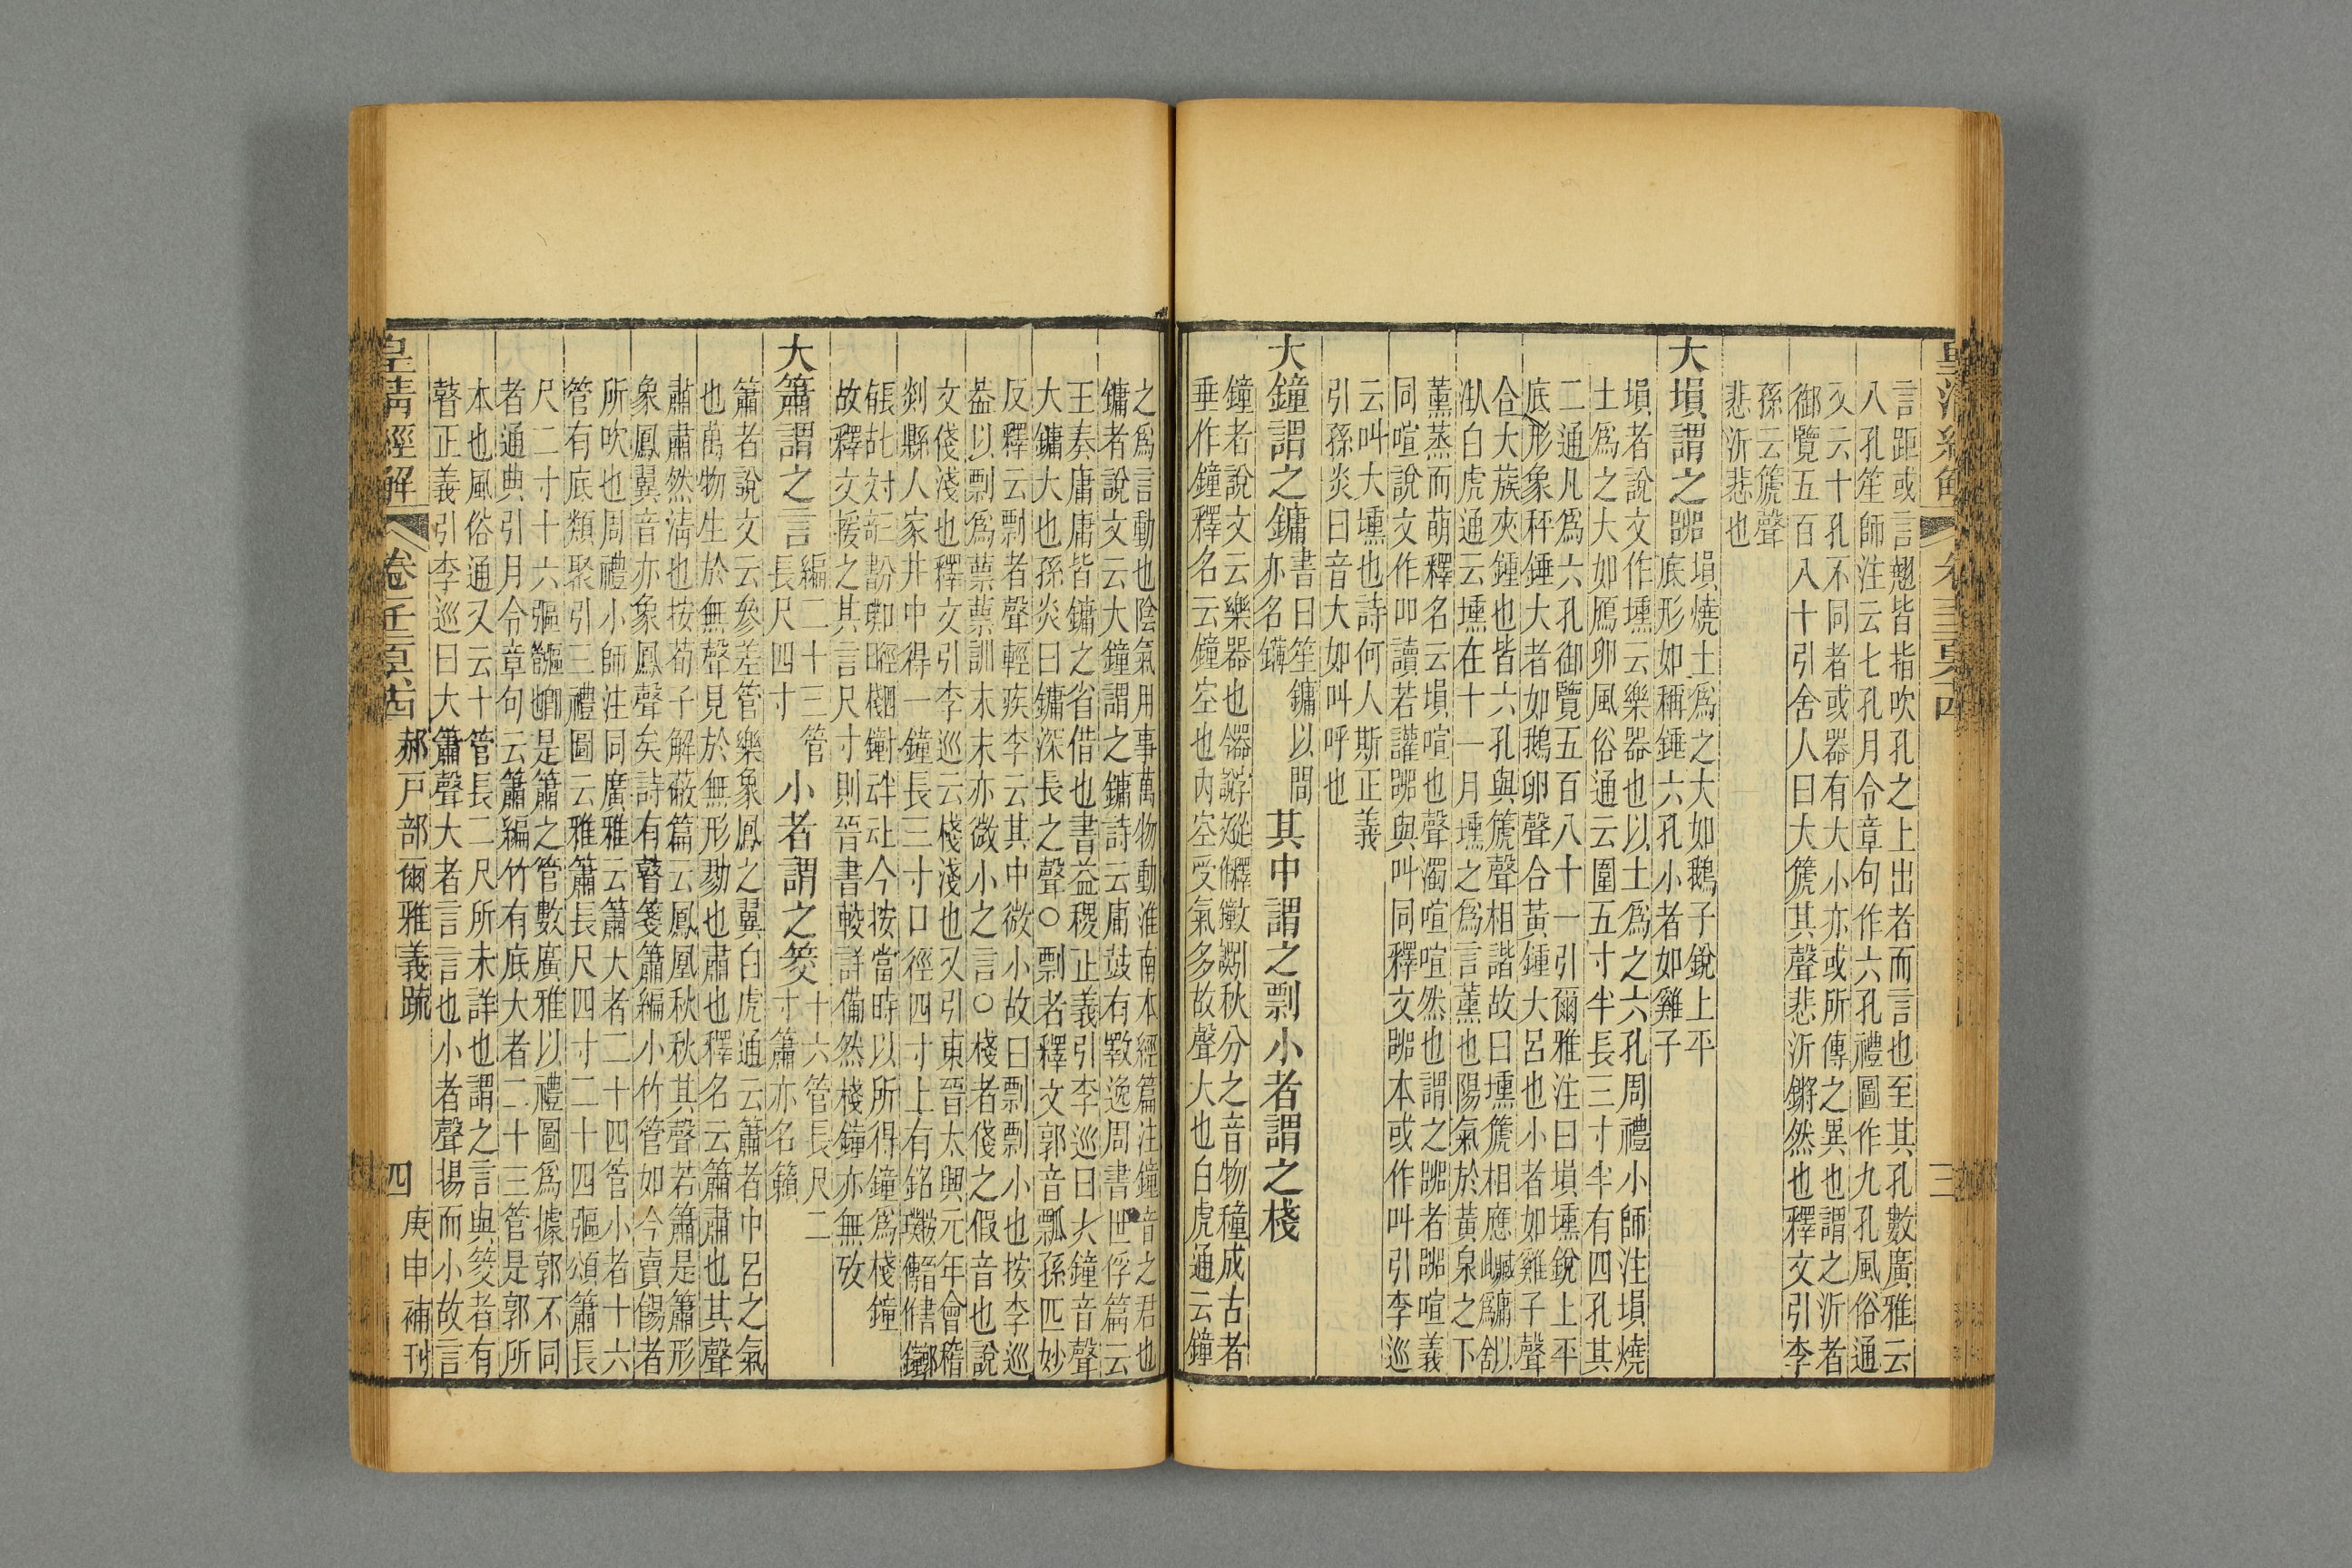 言距或言翹皆指吹孔之上出者而言也至其孔數廣雅云
八孔笙師注云七孔月令章句作六孔禮圖作九孔風俗通
又云十孔不同者或器有大小亦或所傳之異也謂之沂者
御覽五百八十引舍人曰大篪其聲悲沂鏘然也釋文引李
孫云篪聲
悲沂悲也
大塤謂之嘂
塤燒土爲之大如鵝子銳上平
底形如稱錘六孔小者如雞子
塤者說文作壎云樂器也以土爲之六孔周禮小師注塤燒
土爲之大如鴈卵風俗通云圍五寸半長三寸半有四孔其
二通凡爲六孔御覽五百八十一引爾雅注曰塤壎銳上平
底形象秤錘大者如鵝卵聲合黃鍾大呂也小者如雞子聲
合大蔟夾鍾也皆六孔與篪聲相諧故曰壎篪相應
白虎通云壎在十一月壎之爲言薰也陽氣於黃泉之下
薰蒸而萌釋名云塤喧也聲濁喧喧然也謂之嘂者嘂喧義
同喧說文作吅讀若讙嘂與叫同釋文嘂本或作叫引李巡
云叫大壎也詩何人斯正義
引孫炎曰音大如叫呼也
大鐘謂之鏞
書曰笙鏞以間
亦名鑮
其中謂之剽小者謂之棧
鐘者說文云樂器也 秋分之音物種成古者
垂作鐘釋名云鐘空也內空受氣多故聲大也白虎通云鐘
之爲言動也陰氣用事萬物動淮南本經篇注鐘音之君也
鏞者說文云大鐘謂之鏞詩云庸鼓有斁逸周書世俘篇云
王奏庸庸皆鏞之省借也書益稷正義引李巡曰大鐘音聲
大鏞大也孫炎曰鏞深長之聲○剽者釋文郭音瓢孫匹妙
反釋云剽者聲輕疾李云其中微小故曰剽剽小也按李巡
葢以剽爲蔈蔈訓末末亦微小之言○棧者俴之假音也說
文俴淺也釋文引李巡云棧淺也又引東晉太興元年會稽
剡縣人家井中得一鐘長三寸口徑四寸上有銘
今按當時以所得鐘爲棧鐘
故釋文援之其言尺寸則晉書較詳備然棧鐘亦無攷
大簫謂之言
編二十三管
長尺四寸
小者謂之筊
十六管長尺二
寸簫亦名籟
簫者說文云參差管樂象鳳之翼白虎通云簫者中呂之氣
也萬物生於無聲見於無形勠也肅也釋名云簫肅也其聲
肅肅然淸也按荀子解蔽篇云鳳凰秋秋其聲若簫是簫形
象鳳翼音亦象鳳聲矣詩有瞽箋簫編小竹管如今賣餳者
所吹也周禮小師注同廣雅云簫大者二十四管小者十六
管有底類聚引三禮圖云雅簫長尺四寸二十四彄頌簫長
尺二寸十六彄 是簫之管數廣雅以禮圖爲據郭不同
者通典引月令章句云簫編竹有底大者二十三管是郭所
本也風俗通又云十管長二尺所未詳也謂之言與筊者有
瞽正義引李巡曰大簫聲大者言言也小者聲揚而小故言
皇清經解
卷一千二百六十四
郝戶部爾雅義疏
四
庚申補刊